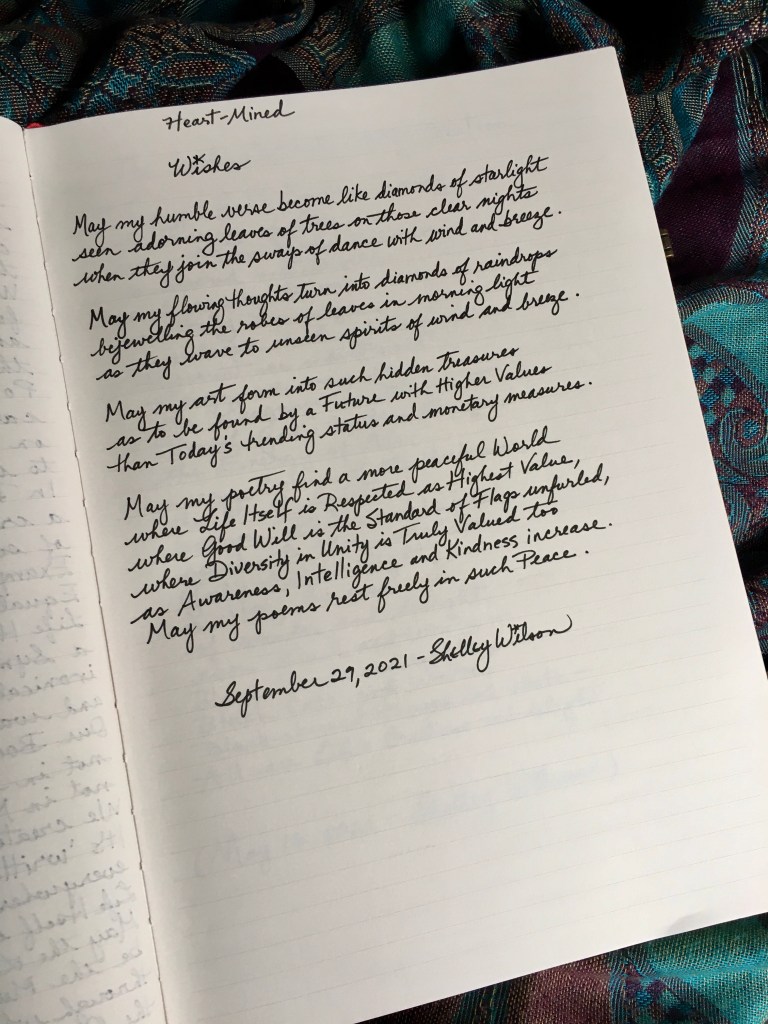 Heart-Mined
Wishes
May my humble verse become like diamonds of starlight
seen adorning leaves of trees on those clear nights
when they join the sways of dance with wind and breeze.
May my flowing thoughts turn into diamonds of raindrops
bejewelling the robes of leaves in morning light
as they wave to unseen spirits of wind and breeze.
May my art form into such hidden treasures
as to be found by a Future with Higher Values
than Today's trending status and monetary measures.
May my poetry find a more peaceful World
where Life Itself is Respected as Highest Value,
where Good Will is the Standard of Flags unfurled,
where Diversity in Unity is Truly Valued too
as Awareness, Intelligence and Kindness increase.
May my poems rest freely in such Peace.
September 29, 2021 - Shelley Wilson